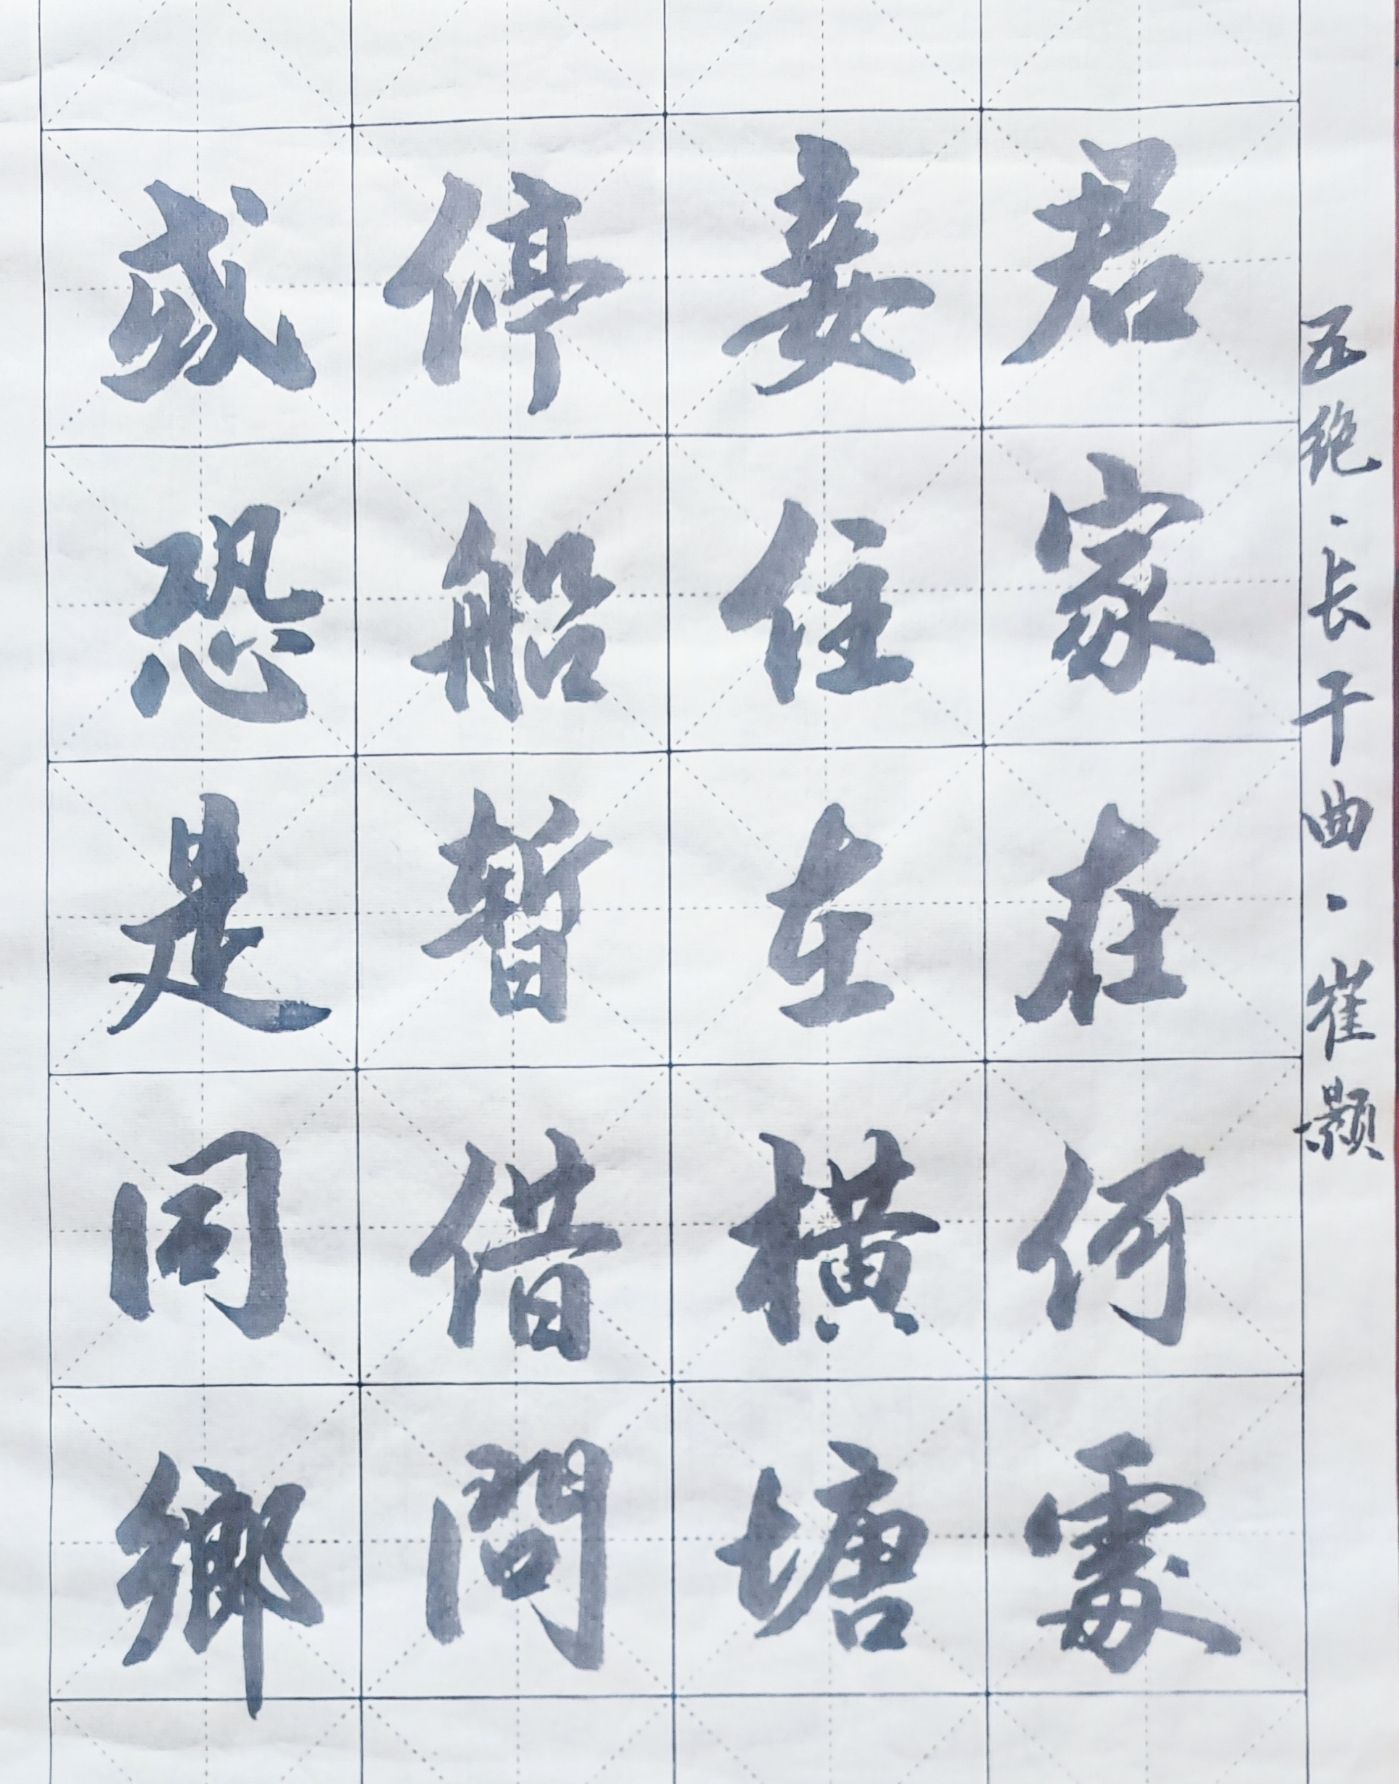 五绝·长干曲·崔颢
君家在何處
妾住在橫塘
停船暫借問
或恐是同鄉